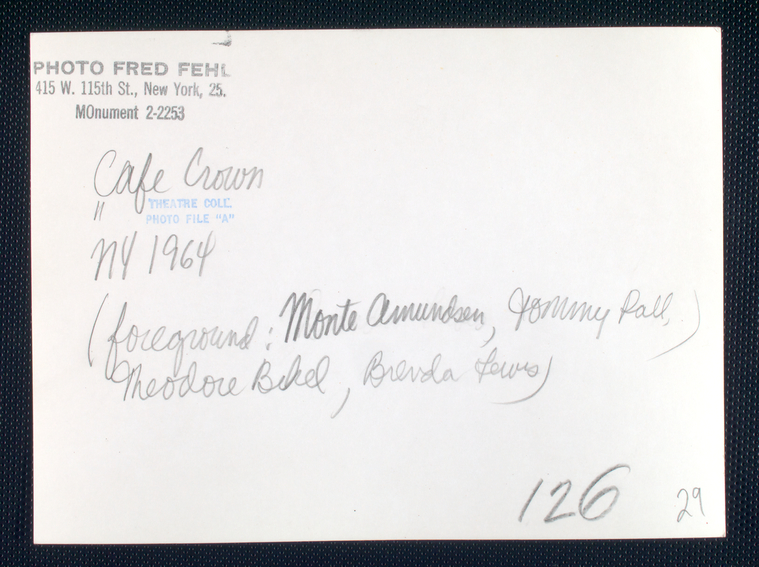 PHOTO FRED FEHL
415 W. 115th St., New York, 25.
MOnument 2-2253
Cafe Crown
"
THEATRE COLL.
PHOTO FILE "A"
NY 1964
(foreground: Monte Amundsen, Tommy Rall,)
Theodore Bikel, Brenda Lewis)
126
29